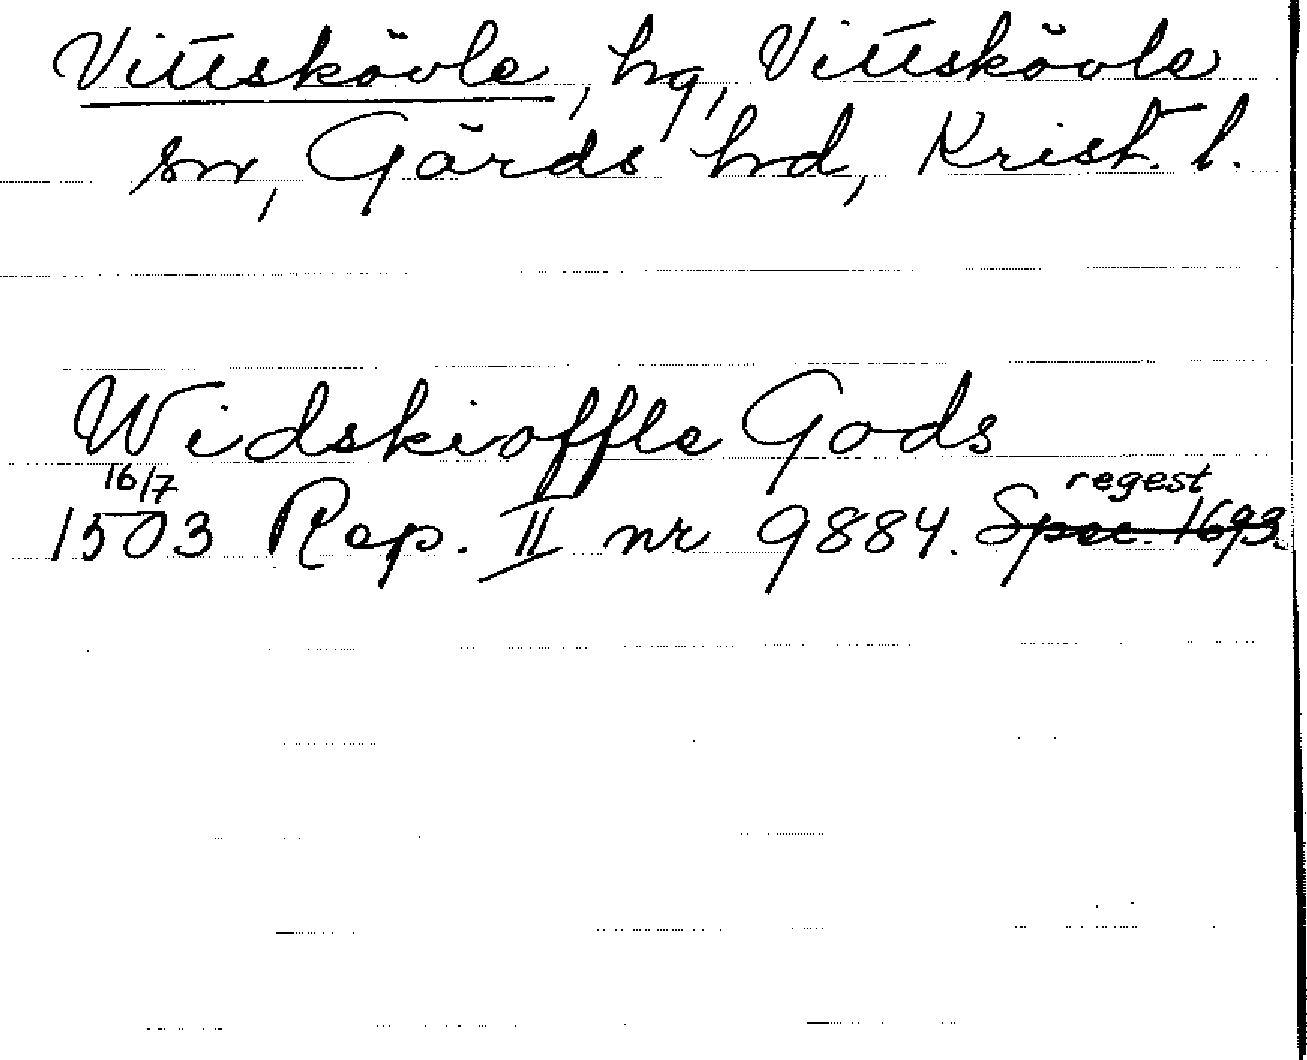 Vittskövle, hg, Vittskövle
sn, Gärds hd, Krist. l.
Widskioffle Gods
16/7 regest
1503 Rep. II nr 9884. Spec. 1693